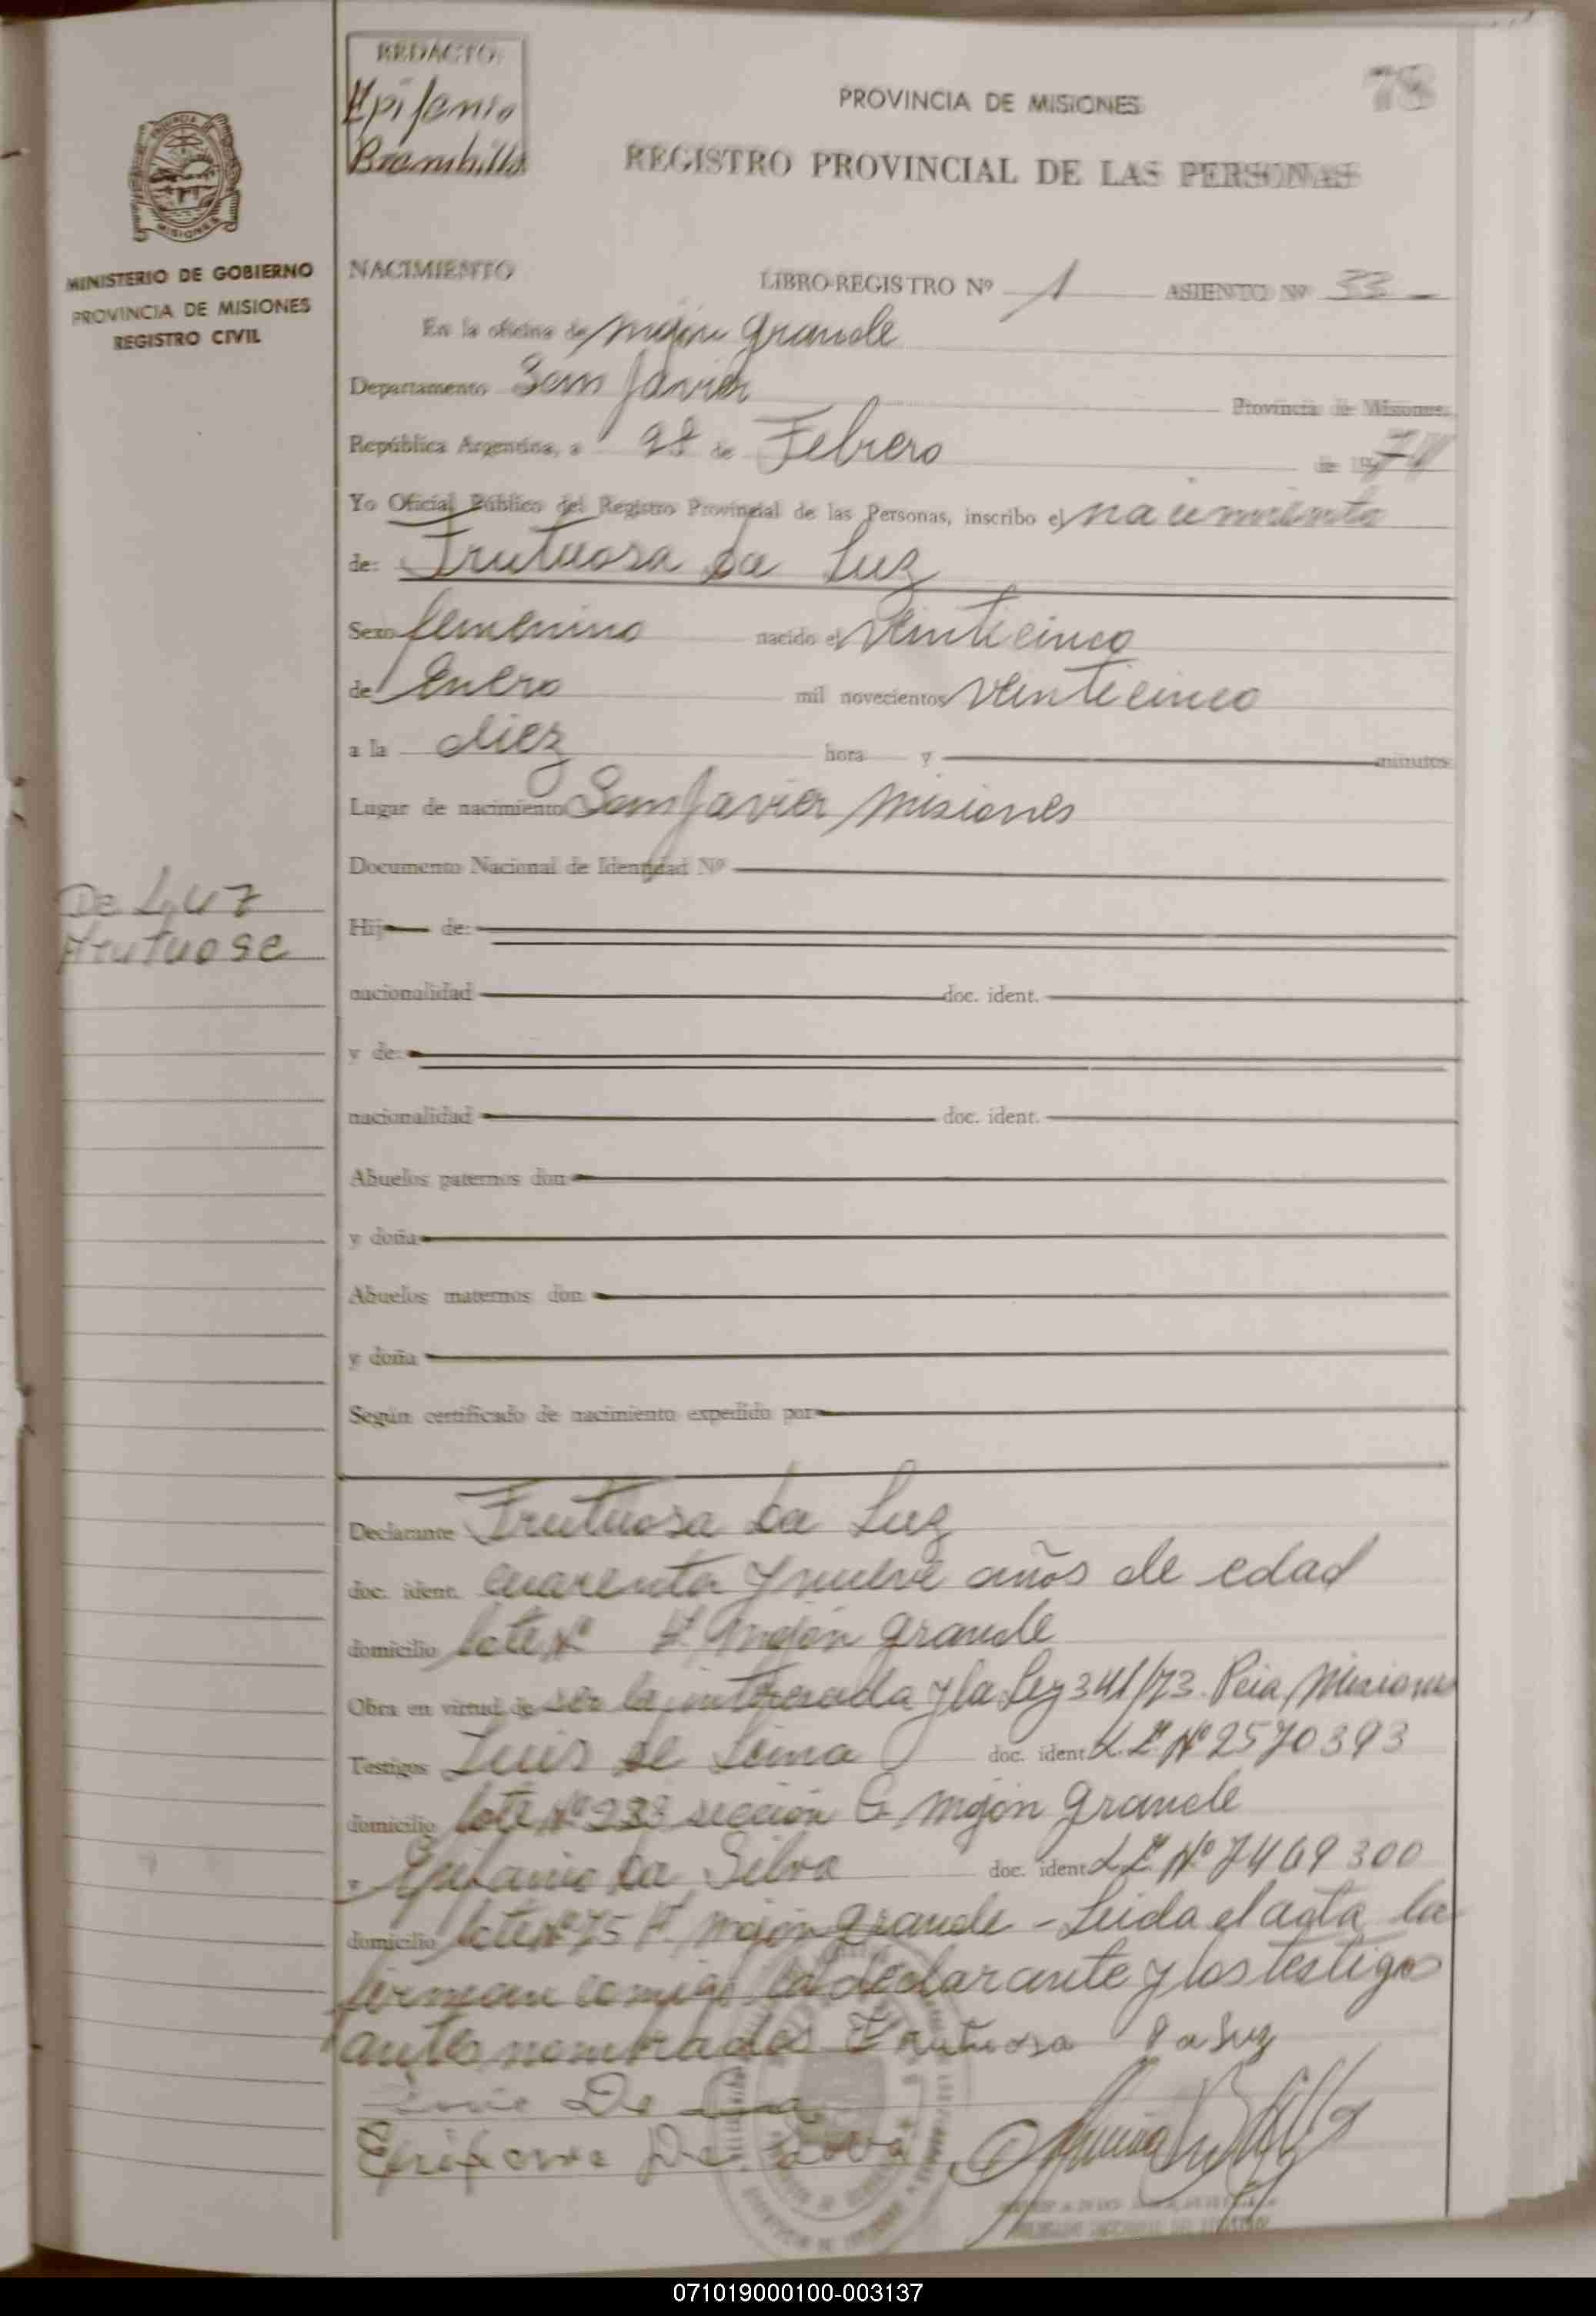 REDACTO:
Epifanio
Brambilla
PROVINCIA DE MISIONES
78
REGISTRO PROVINCIAL DE LAS PERSONAS
PROVINCIA
MISIONES
MINISTERIO DE GOBIERNO
PROVINCIA DE MISIONES
REGISTRO CIVIL
NACIMIENTO
LIBRO-REGISTRO Nº 1 ASIENTO Nº 33
En la oficina de Mojón Grande
Departamento San Javier Provincia de Misiones
República Argentina, a 28 de Febrero de 1974
Yo Oficial Público del Registro Provincial de las Personas, inscribo el nacimiento
de: Frutuosa Da Luz
Sexo femenino nacido el Veinticinco
de Enero mil novecientos Veinticinco
a la diez hora y minutos
Lugar de nacimiento San Javier Misiones
Documento Nacional de Identidad Nº
De Luz
Frutuosa
Hij de:
nacionalidad doc. ident.
y de:
nacionalidad doc. ident.
Abuelos paternos don
y doña
Abuelos maternos don
y doña
Según certificado de nacimiento expedido por
Declarante Frutuosa Da Luz
doc. ident. cuarenta y nueve años de edad
domicilio lote Nº Mojón Grande
Obra en virtud de ser la interesada y la Ley 341/73 Pcia Misiones
Testigos Luis de Lima doc. ident L.E. Nº 2570393
domicilio lote Nº 233 sección G Mojón Grande
Epifanio Da Silva doc. ident L.E. Nº 7469300
domicilio lote Nº 75 Mojón Grande - Leida el acta la
firman comigo la declarante y los testigos
antes nombrados Frutuosa Da Luz
De
Epifanio Da Silva
071019000100-003137